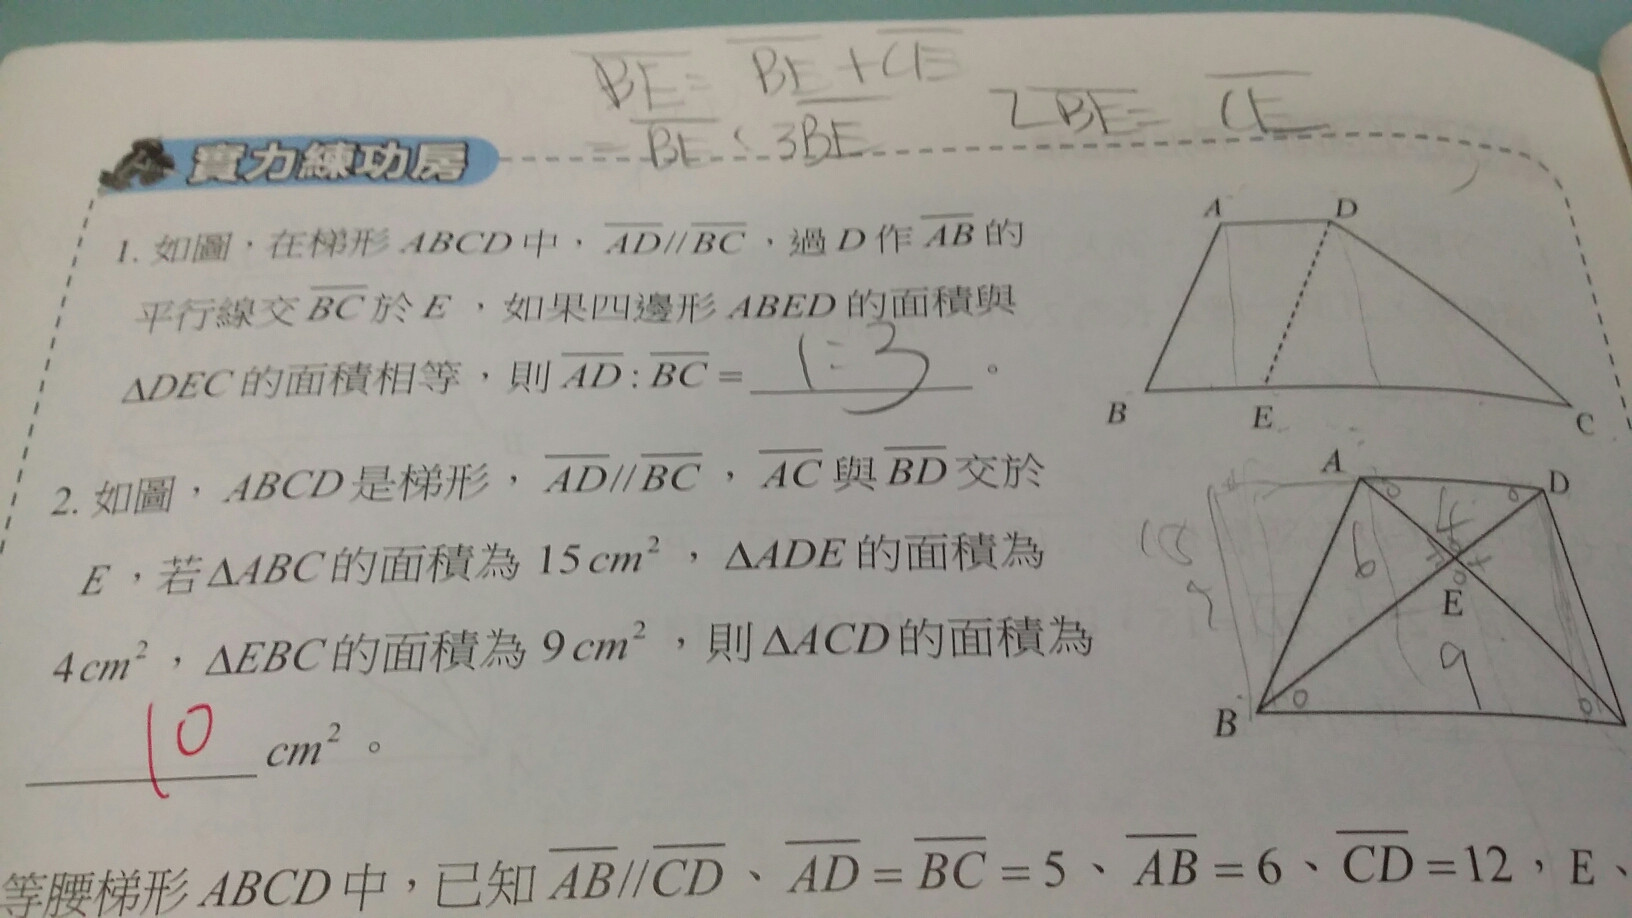 BE = BE + CE
= BE : 3BE
2BE = CE
實力練功房
1. 如圖，在梯形 ABCD 中，AD//BC，過 D 作 AB 的
平行線交 BC 於 E，如果四邊形 ABED 的面積與
ΔDEC 的面積相等，則 AD:BC = 1:3 。
A D
B E C
2. 如圖，ABCD 是梯形，AD//BC，AC 與 BD 交於
E，若 ΔABC 的面積為 15 cm²，ΔADE 的面積為
4 cm²，ΔEBC 的面積為 9 cm²，則 ΔACD 的面積為
10 cm²。
A D
4
6
E
9
B
等腰梯形 ABCD 中，已知 AB//CD、AD = BC = 5、AB = 6、CD = 12，E、